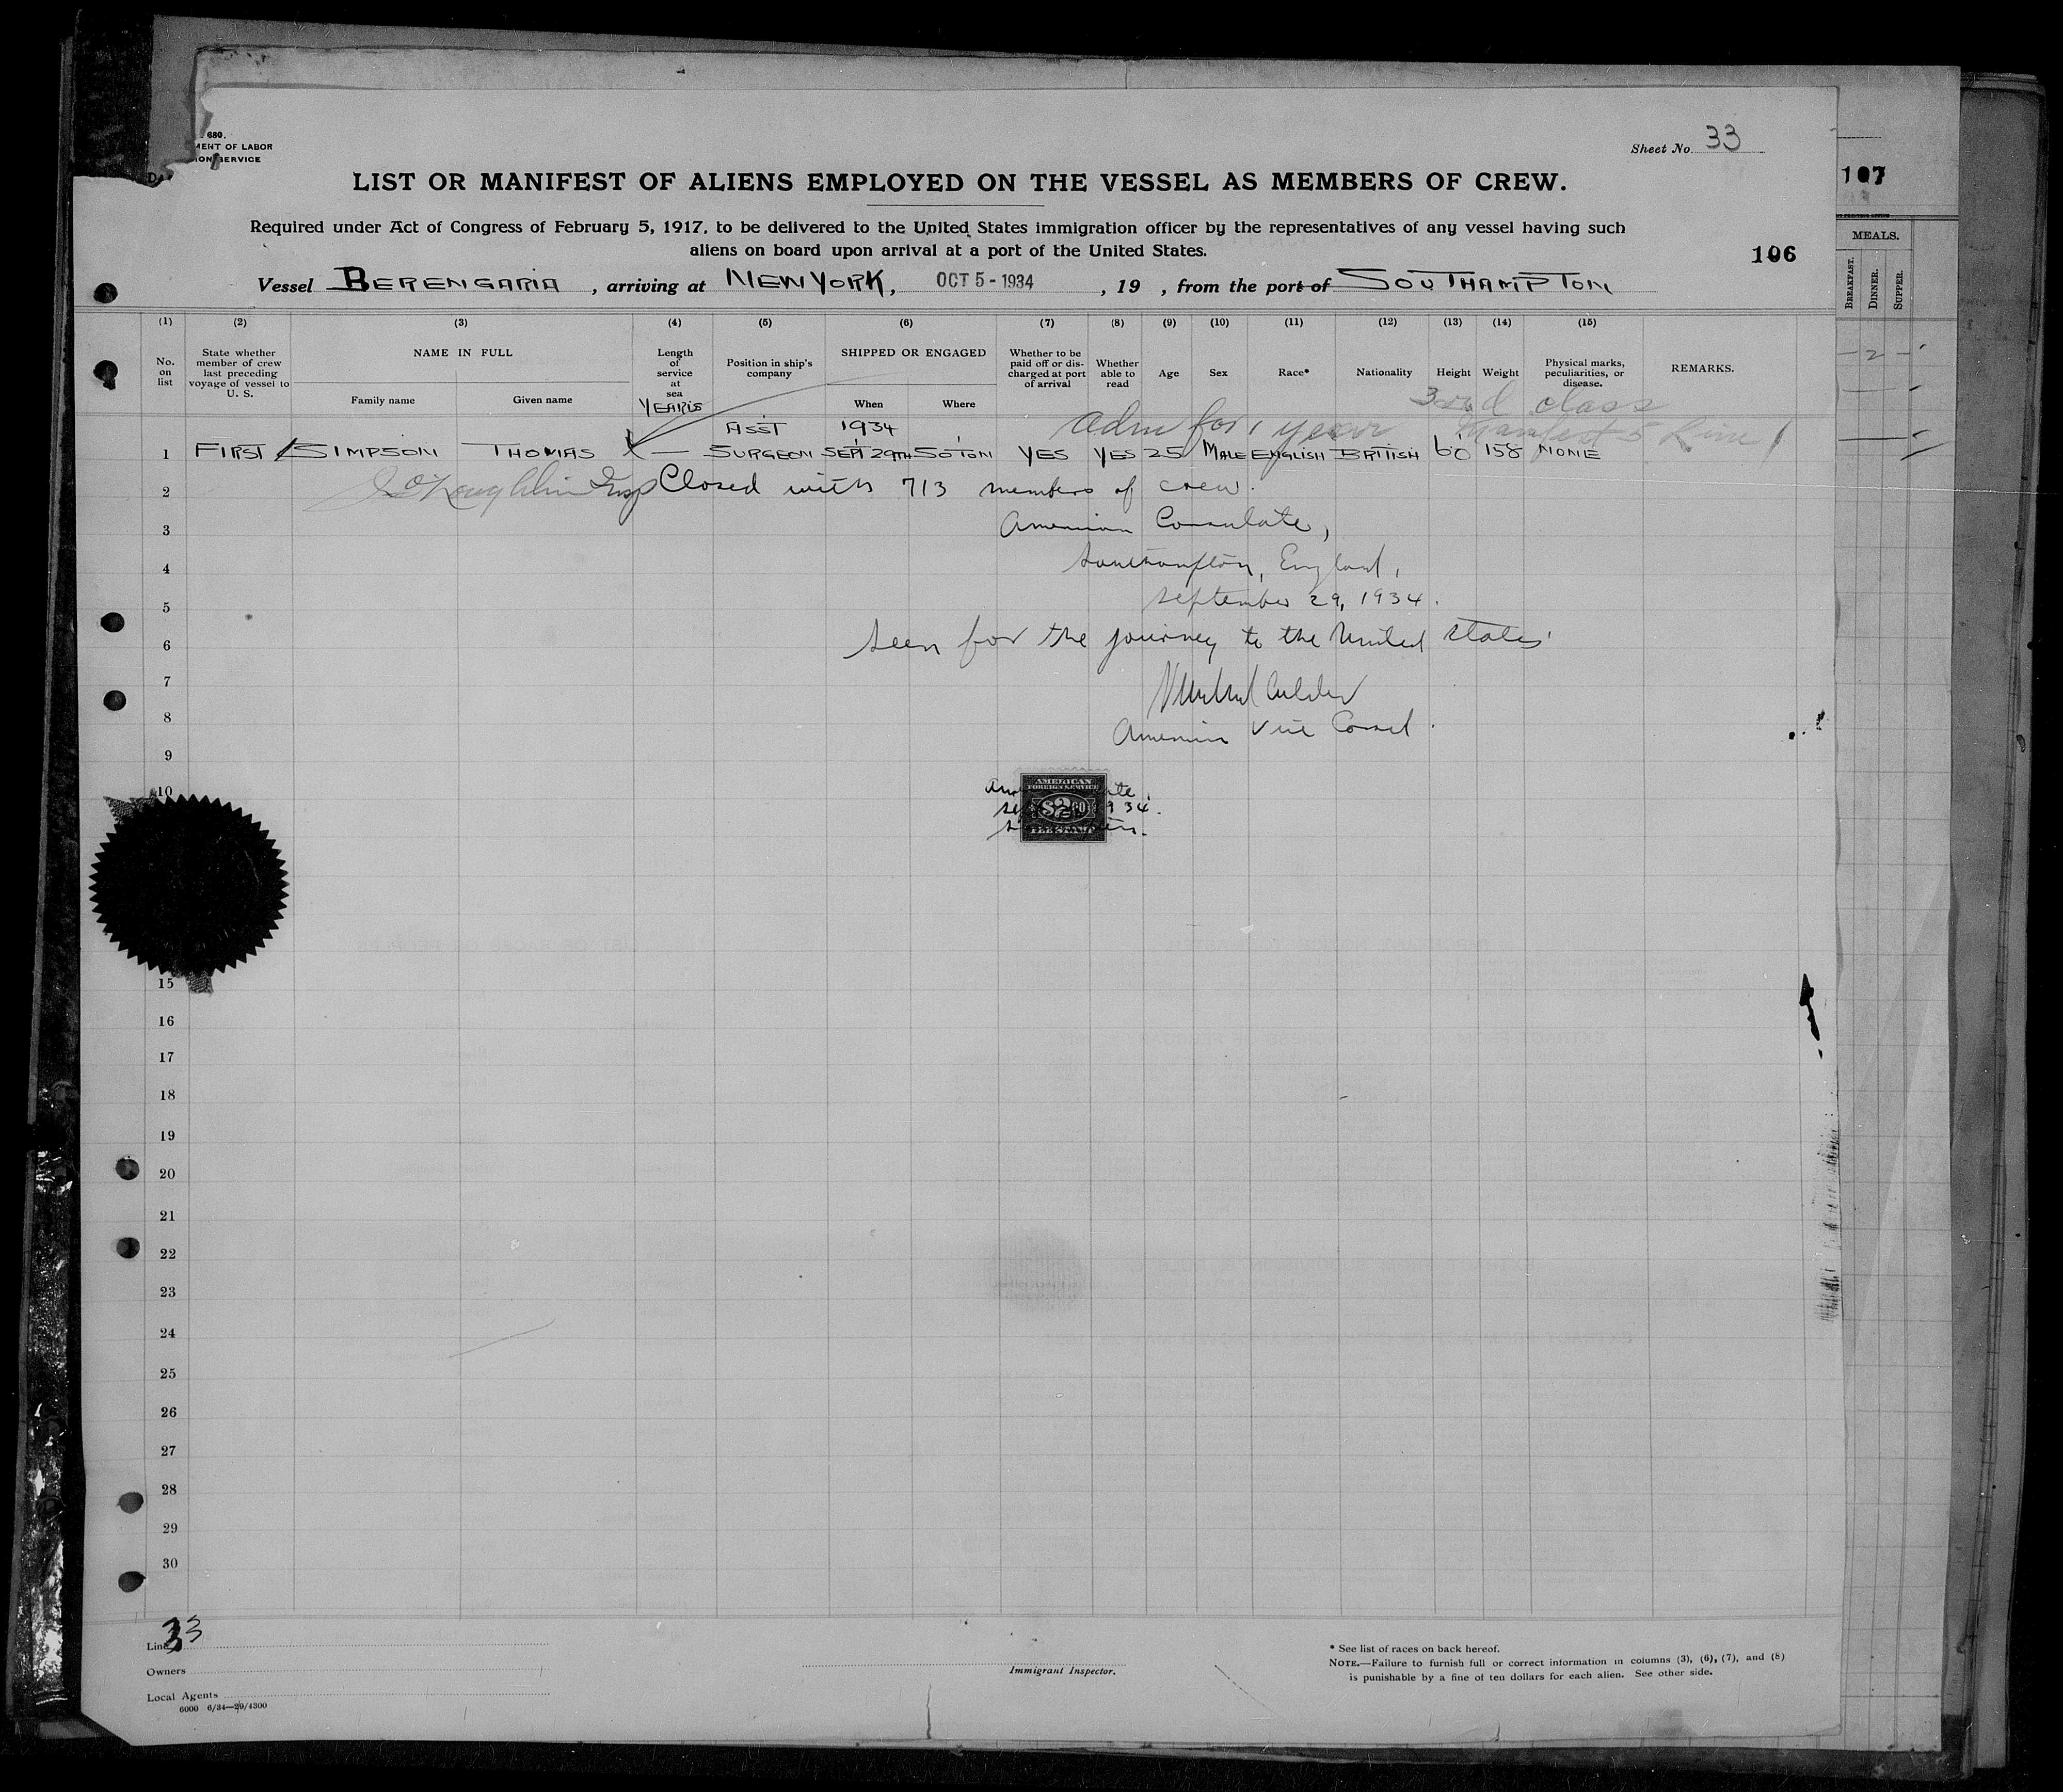 680.
MENT OF LABOR
ION SERVICE
Sheet No. 33
LIST OR MANIFEST OF ALIENS EMPLOYED ON THE VESSEL AS MEMBERS OF CREW.
107
Required under Act of Congress of February 5, 1917, to be delivered to the United States immigration officer by the representatives of any vessel having such
aliens on board upon arrival at a port of the United States.
106
MEALS.
BREAKFAST. DINNER. SUPPER.
Vessel BERENGARIA, arriving at NEW YORK, OCT 5 - 1934, 19 , from the port of SOUTHAMPTON
(1) (2) (3) (4) (5) (6) (7) (8) (9) (10) (11) (12) (13) (14) (15)
No. on list
State whether member of crew last preceding voyage of vessel to U. S.
NAME IN FULL
Family name Given name
Length of service at sea
YEARS
Position in ship's company
SHIPPED OR ENGAGED
When Where
Whether to be paid off or discharged at port of arrival
Whether able to read
Age
Sex
Race*
Nationality
Height
Weight
Physical marks, peculiarities, or disease.
REMARKS.
3rd class
Adm for 1 year Manifest 5 Line 1
ASST 1934
1 FIRST SIMPSON THOMAS — SURGEON SEPT 29TH SO'TON YES YES 25 MALE ENGLISH BRITISH 6'0 158 NONE
2 Closed with 713 members of crew.
3 American Consulate,
4 Southampton, England,
5 September 29, 1934.
6 Seen for the journey to the United States
7
8 American Vice Consul.
9
10
AMERICAN
FOREIGN SERVICE
$2.00
FEE STAMP
15
16
17
18
19
20
21
22
23
24
25
26
27
28
29
30
Line 33
Owners
Local Agents
6000 6/34—20/4300
Immigrant Inspector.
* See list of races on back hereof.
NOTE.—Failure to furnish full or correct information in columns (3), (6), (7), and (8)
is punishable by a fine of ten dollars for each alien. See other side.